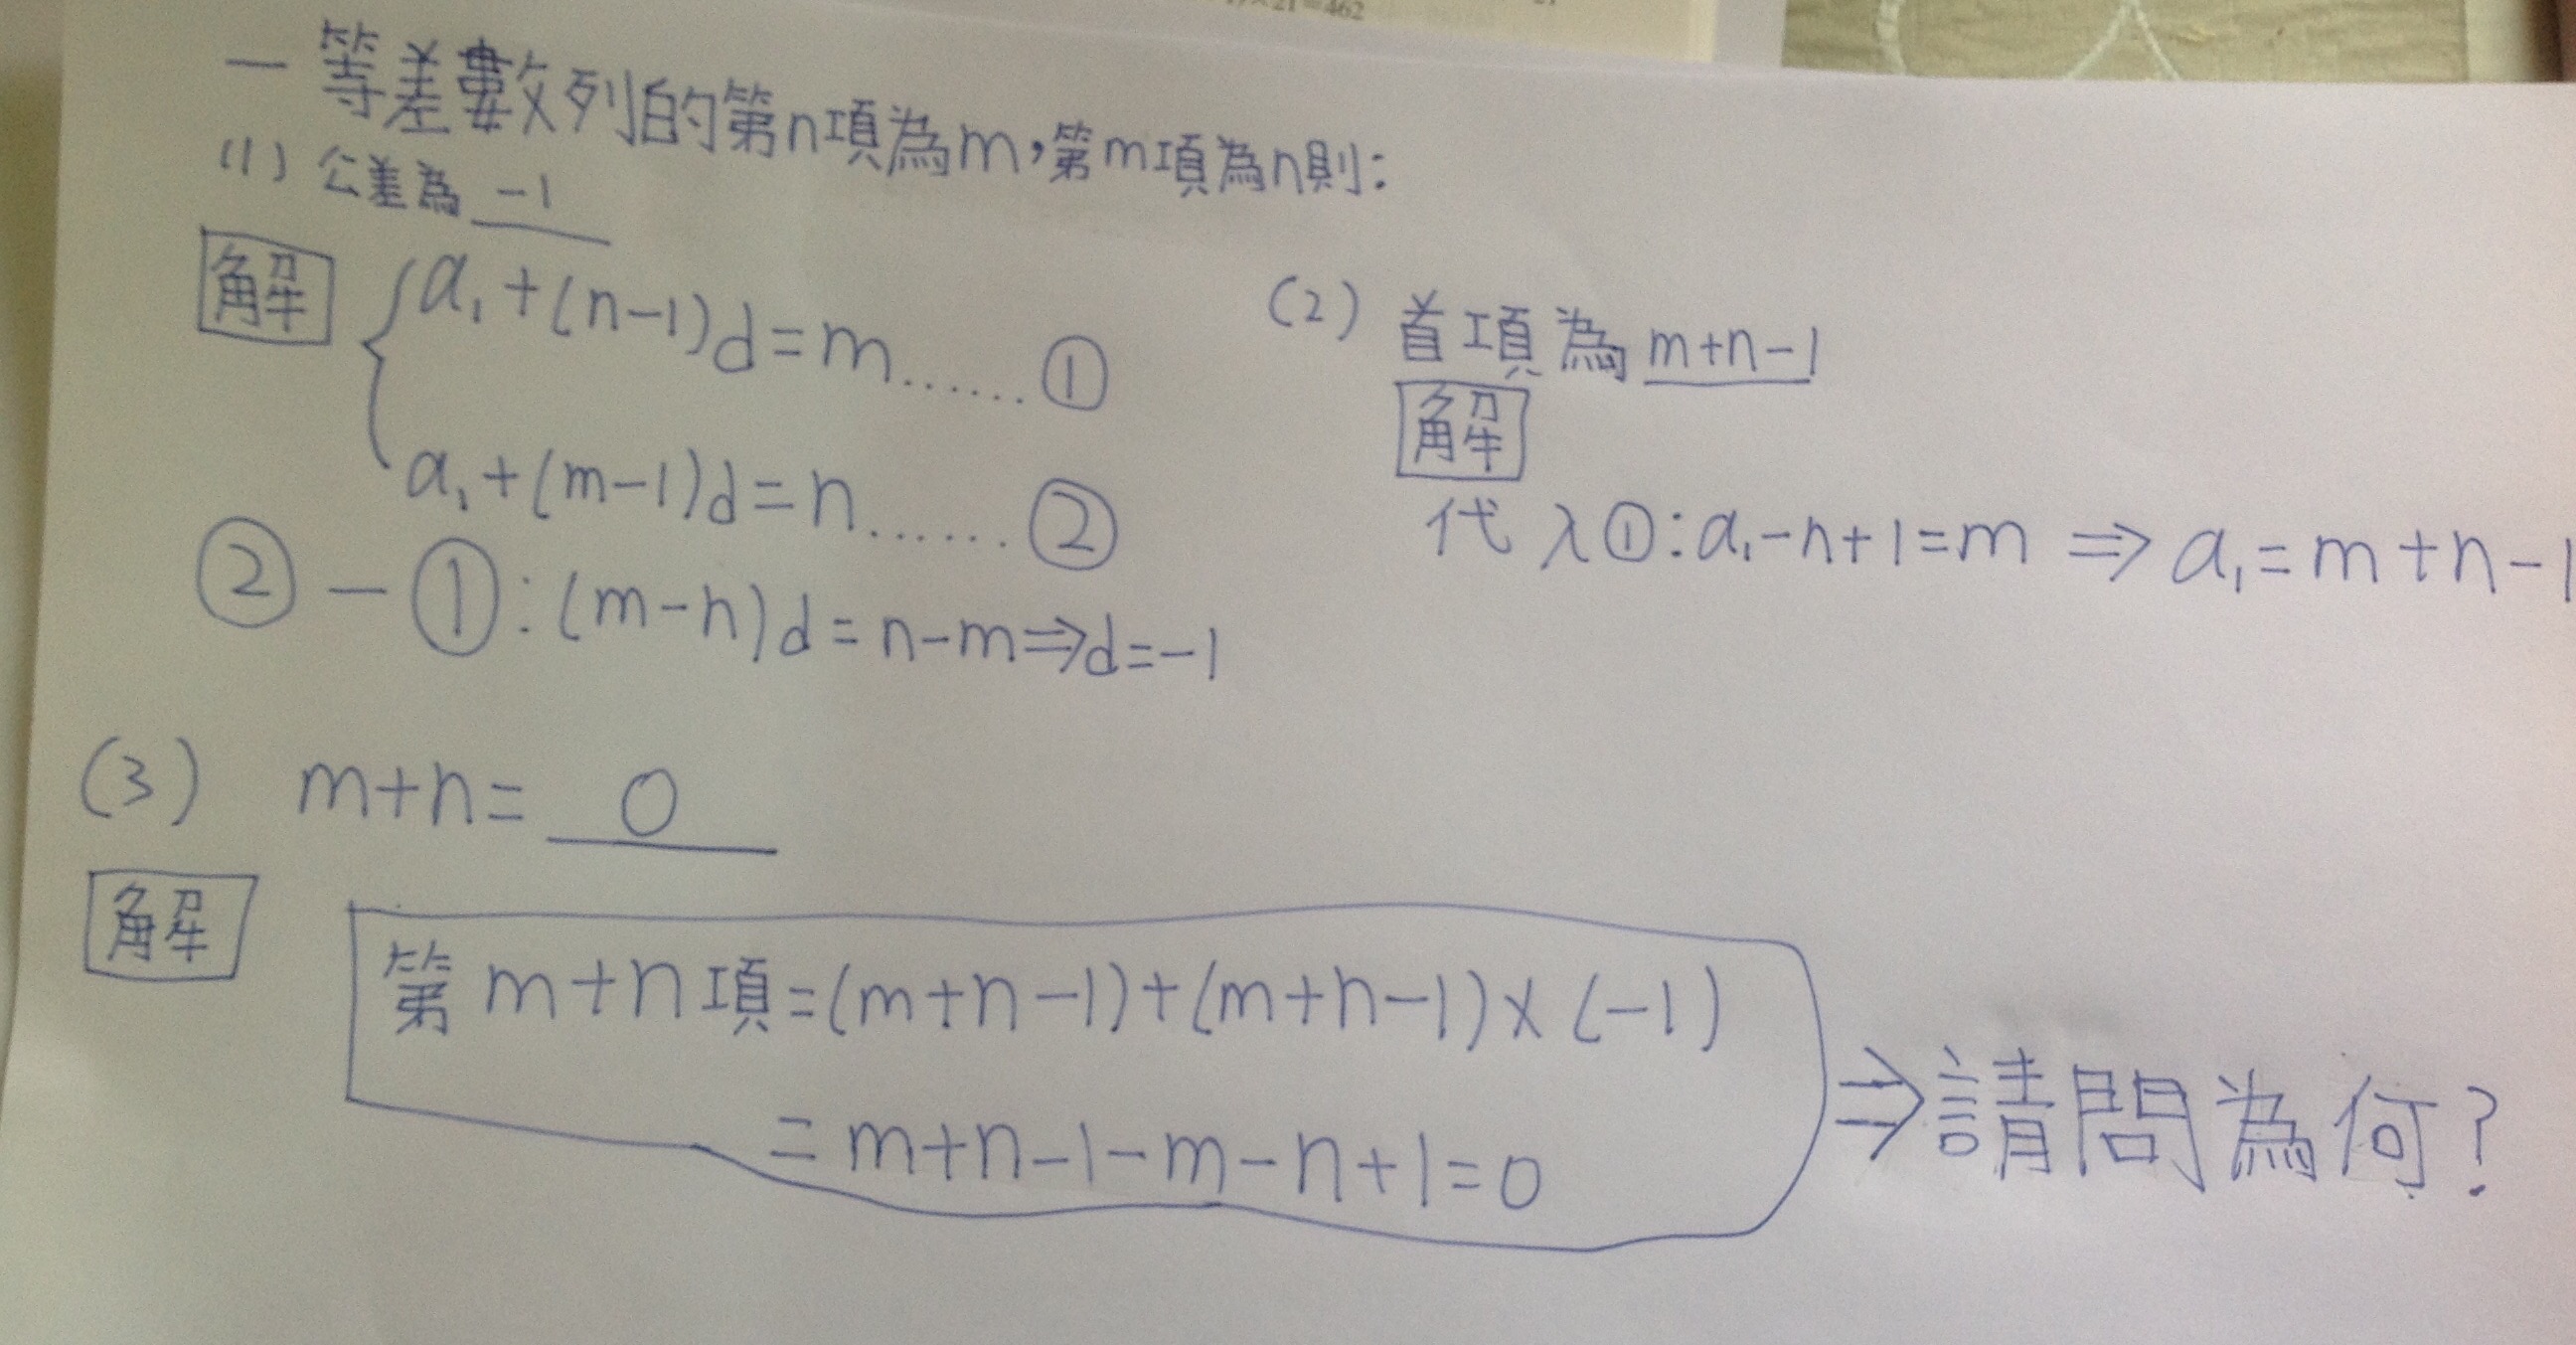 )×21=462
一等差數列的第n項為m,第m項為n則:
(1) 公差為 -1
解 { a₁+(n-1)d=m......①
a₁+(m-1)d=n......②
②-①:(m-n)d=n-m⇒d=-1
(2) 首項為 m+n-1
解
代入①:a₁-n+1=m ⇒ a₁=m+n-1
(3) m+n= 0
解
第m+n項=(m+n-1)+(m+n-1)×(-1)
=m+n-1-m-n+1=0
⇒請問為何?